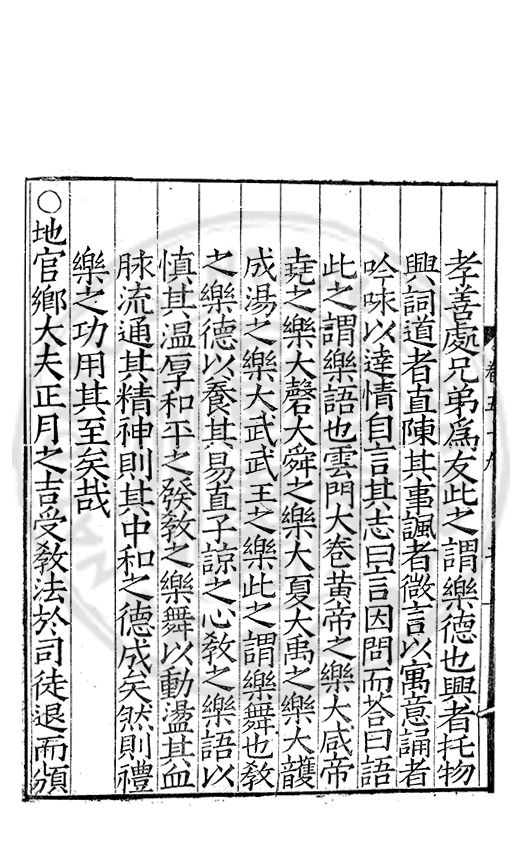 孝善處兄弟爲友此之謂樂德也興者托物
興詞道者直陳其事諷者微言以寓意誦者
吟咏以達情自言其志曰言因問而荅曰語
此之謂樂語也雲門大卷黃帝之樂大咸帝
堯之樂大磬大舜之樂大夏大禹之樂大頀
成湯之樂大武武王之樂此之謂樂舞也敎
之樂德以養其易直子諒之心敎之樂語以
慎其溫厚和平之發敎之樂舞以動盪其血
脉流通其精神則其中和之德成矣然則禮
樂之功用其至矣哉
○地官鄉大夫正月之吉受敎法於司徒退而頒